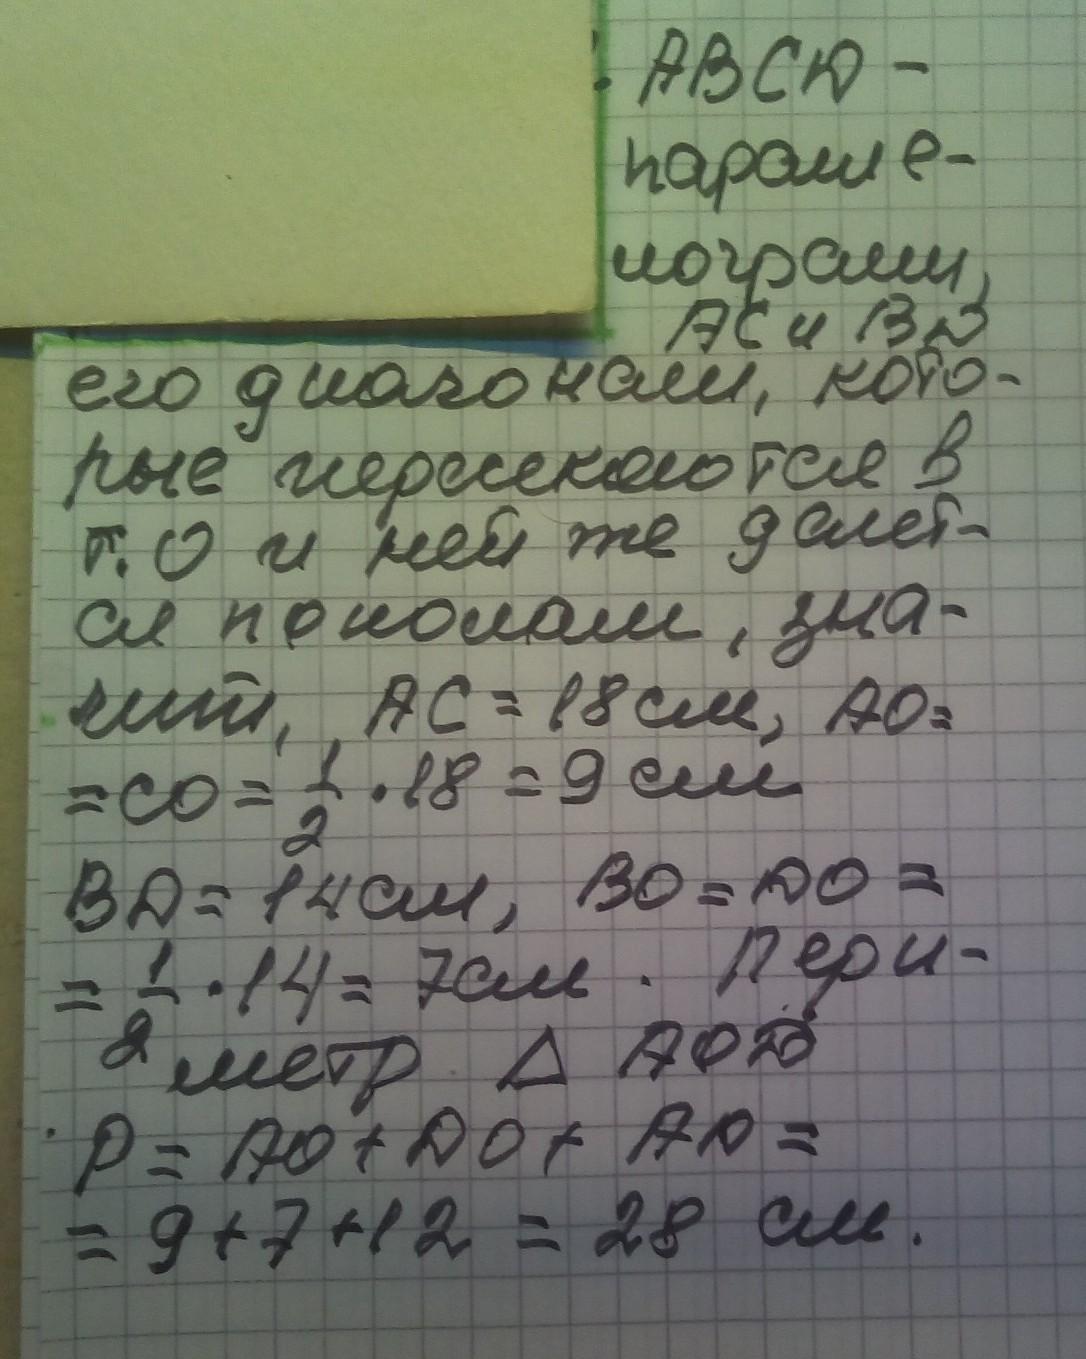 ABCD -
паралле-
лограмм,
AC и BD
его диагонали, кото-
рые пересекаются в
т. O и ней же делет-
ся пополам, зна-
чит, AC = 18 см, AO=
=CO = 1/2 · 18 = 9 см
BD = 14 см, BO = DO =
= 1/2 · 14 = 7 см. Пери-
метр Δ AOD
P = AO + DO + AD =
= 9 + 7 + 12 = 28 см.